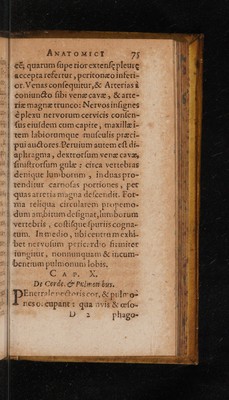 ANATOMICI 75
eē, quarum superior extensę pleurę
accepta refertur, peritonæo inferi-
or. Venas consequitur, & Arterias à
coniuncto sibi venæ cavæ, & arte-
riæ magnæ trunco: Nervos insignes
è plexu nervorum cervicis consen-
sus eiusdem cum capite, maxillæ i-
tem labiorumque musculis præci-
pui auctores. Pervium autem est di-
aphragma, dextrorsum venæ cavæ,
sinistrorsum gulæ: circa vertebras
denique lumborum, in duas pro-
tenditur carnosas portiones, per
quas arteria magna descendit. For-
ma reliqua circularem propemo-
dum ambitum designat, lumborum
vertebris, costisque spuriis cogna-
tum. In medio, ubi centrum exhi-
bet nervosum pericardio firmiter
iungitur, nonnunquam & incum-
bentium pulmonum lobis.
CAP. X.
De Corde, & Pulmonibus.
PEnetrale pectoris cor, & pulmo-
nes occupant: qua avis & œso-
D 2 phago-